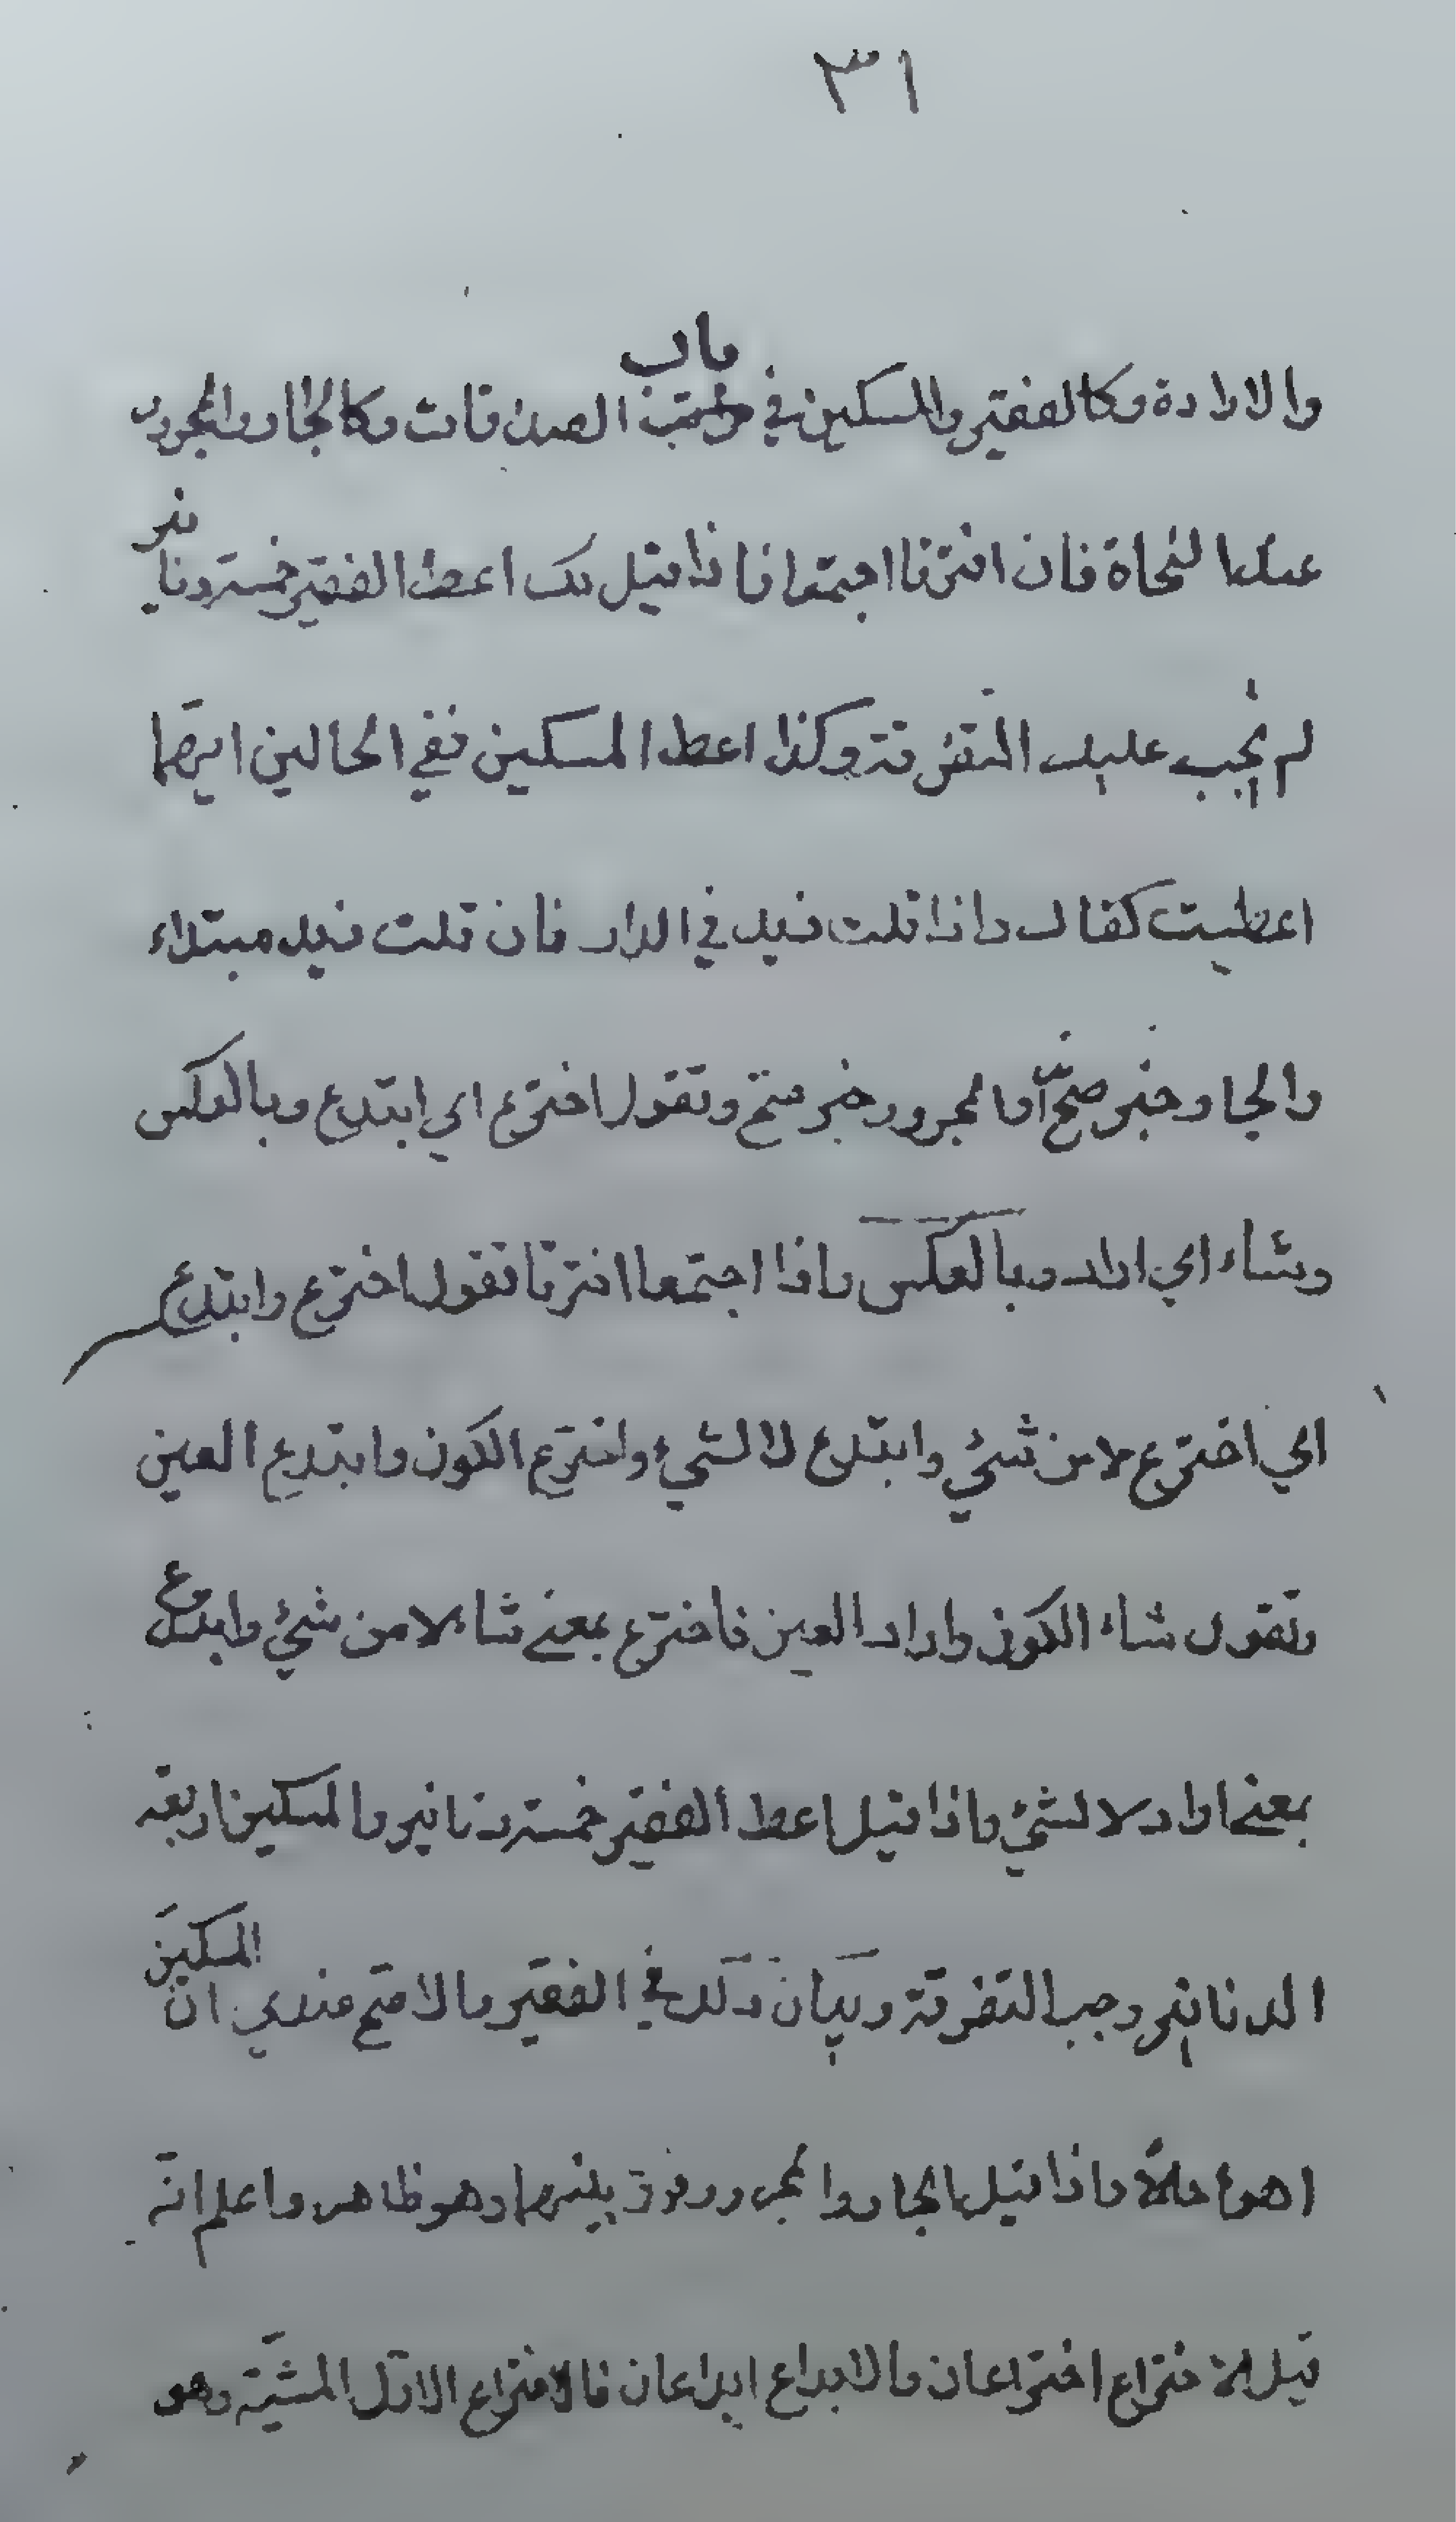 ٣١
باب
والارادة وكالفقير والمسكين في الصدقات وكالجار والمجرور
عند النحاة فان افترقا اجتمعا فاذا قيل لك اعط الفقير خمسة دنانير
لم يجب عليك التفرقة وكذا اعط المسكين ففي الحالين ايهما
اعطيت كفاك واذا قلت زيد في الدار فان قلت زيد مبتداء
والجار خبر صحّ او المجرور خبر صح وتقول اخترع اي ابتدع وبالعكس
وشاء اي اراد وبالعكس واذا اجتمعا افترقا تقول اخترع وابتدع
اي اخترع لا من شيء وابتدع لا لشيء واخترع الكون وابتدع العين
وتقول شاء الكون واراد العين فاخترع بمعنى شاء لا من شيء وابتدع
بمعنى اراد لا لشيء واذا قيل اعط الفقير خمسة دنانير والمسكين اربعة
الدنانير وجب التفرقة وبيان ذلك في الفقير والاصح عندي ان المسكين
اسوء حالاً واذا قيل الجار والمجرور فرق بينهما وهو ظاهر واعلم انه
قيل الاختراع اختراعان والابداع ابداعان فالاختراع الاول المشية وهو